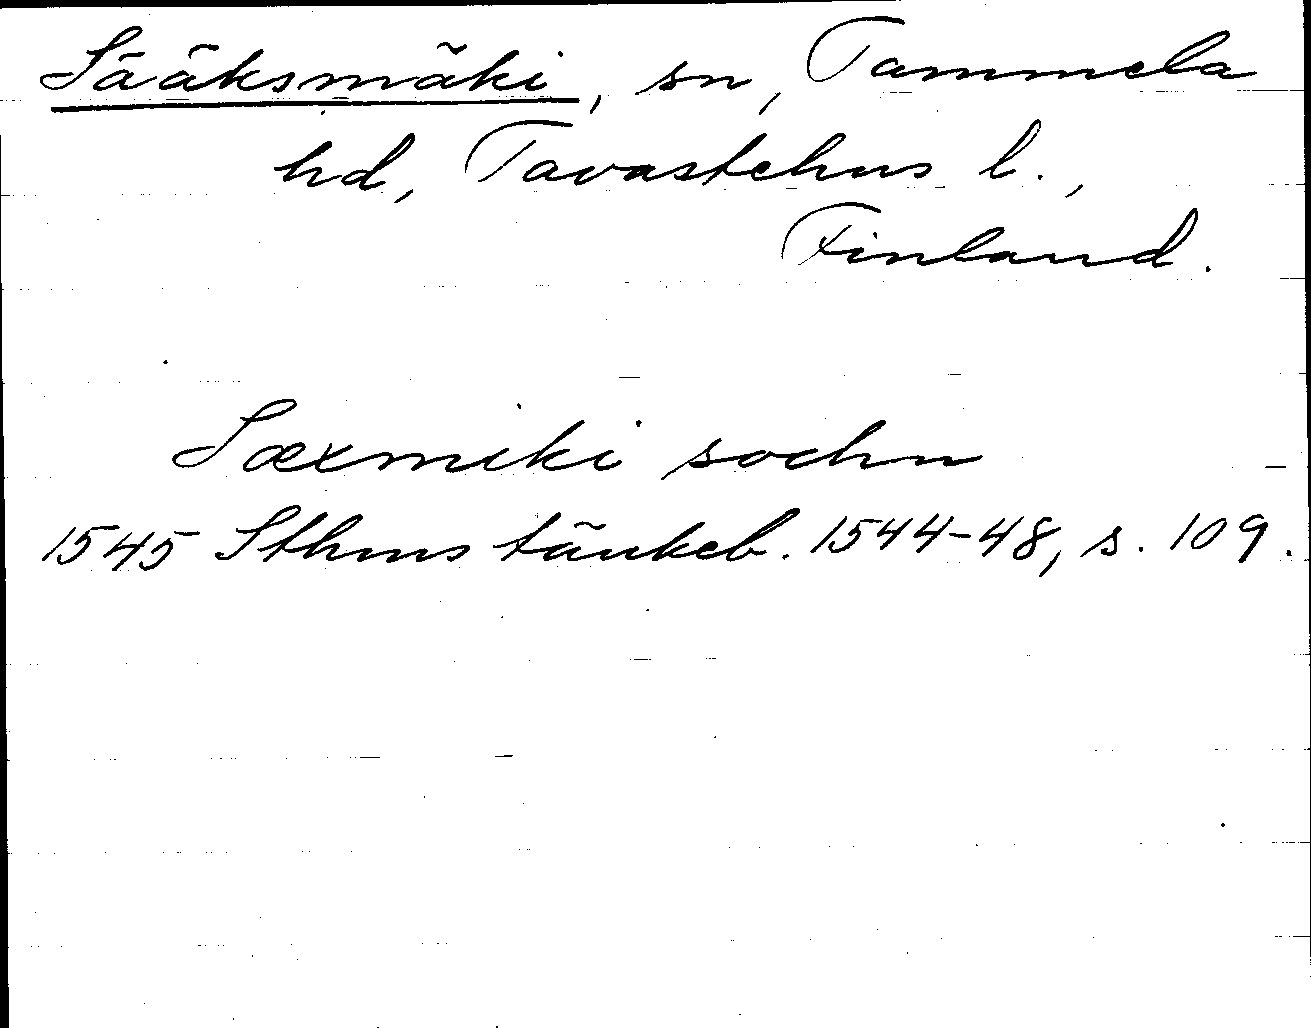 Sääksmäki, sn, Tammela
hd, Tavastehus l.,
Finland.
Sæxmiki sochn
1545 Sthms tänkeb. 1544-48, s. 109.